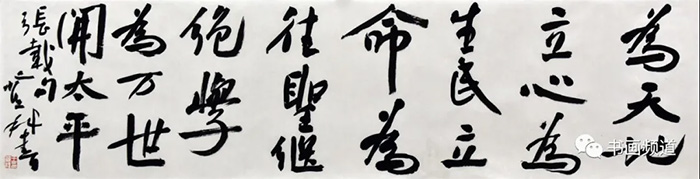 為天地
立心為
生民立
命為
往聖继
绝學
為万世
開太平
張載句
书画频道